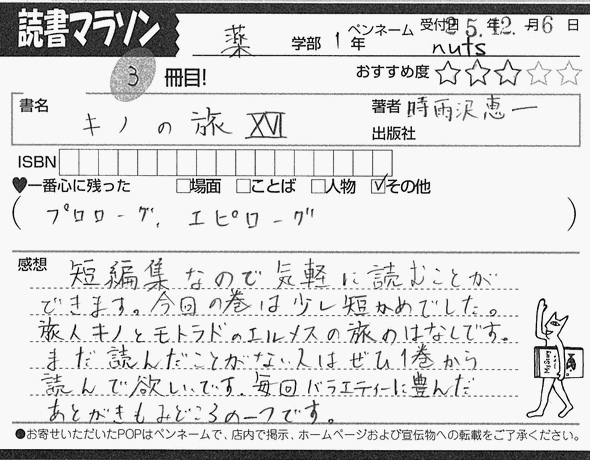 読書マラソン
薬 学部 1 年
ペンネーム
nuts
受付日 25年12月6日
3 冊目!
おすすめ度 ☆☆☆☆☆
書名
キノの旅 XVI
著者 時雨沢恵一
出版社
ISBN
♥一番心に残った □場面 □ことば □人物 ☑その他
(プロローグ、エピローグ)
感想
短編集なので気軽に読むことが
できます。今回の巻は少し短かめでした。
旅人キノとモトラドのエルメスの旅のはなしです。
まだ読んだことがない人はぜひ1巻から
読んで欲しいです。毎回バラエティーに豊んだ
あとがきもみどころの一つです。
●お寄せいただいたPOPはペンネームで、店内で掲示、ホームページおよび宣伝物への転載をご了承ください。